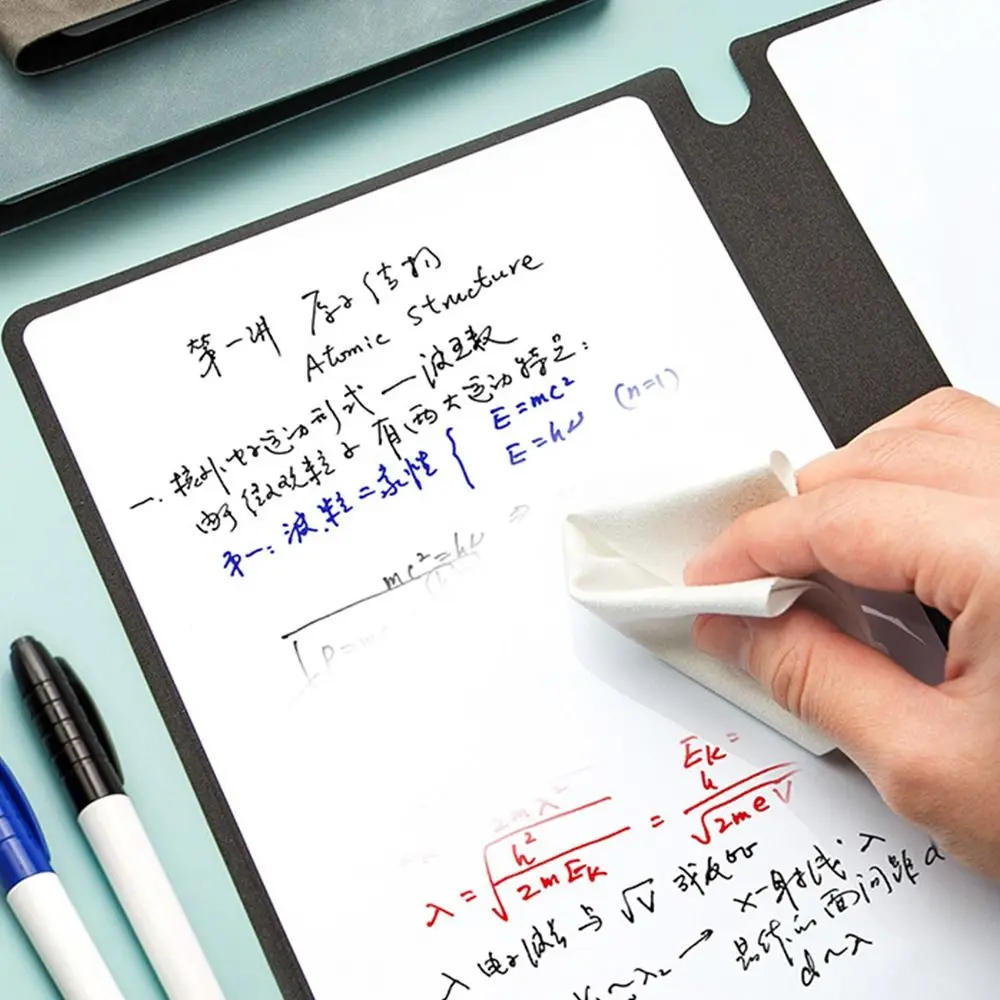 第一讲 原子结构
Atomic Structure
一. 核外电子运动形式 — 波函数
由于微观粒子有两大运动特点:
第一: 波粒二象性 { E=mc² (n=1)
E=hν
mc²=hν ⇒
P=mc
2mλ²
λ = √(h²/2mEₖ) = h/√(2meV)
Eₖ =
λ 电子波长与 √V 成反比
X-射线 λ
λ₂ → 晶体的面间距 d
d~λ